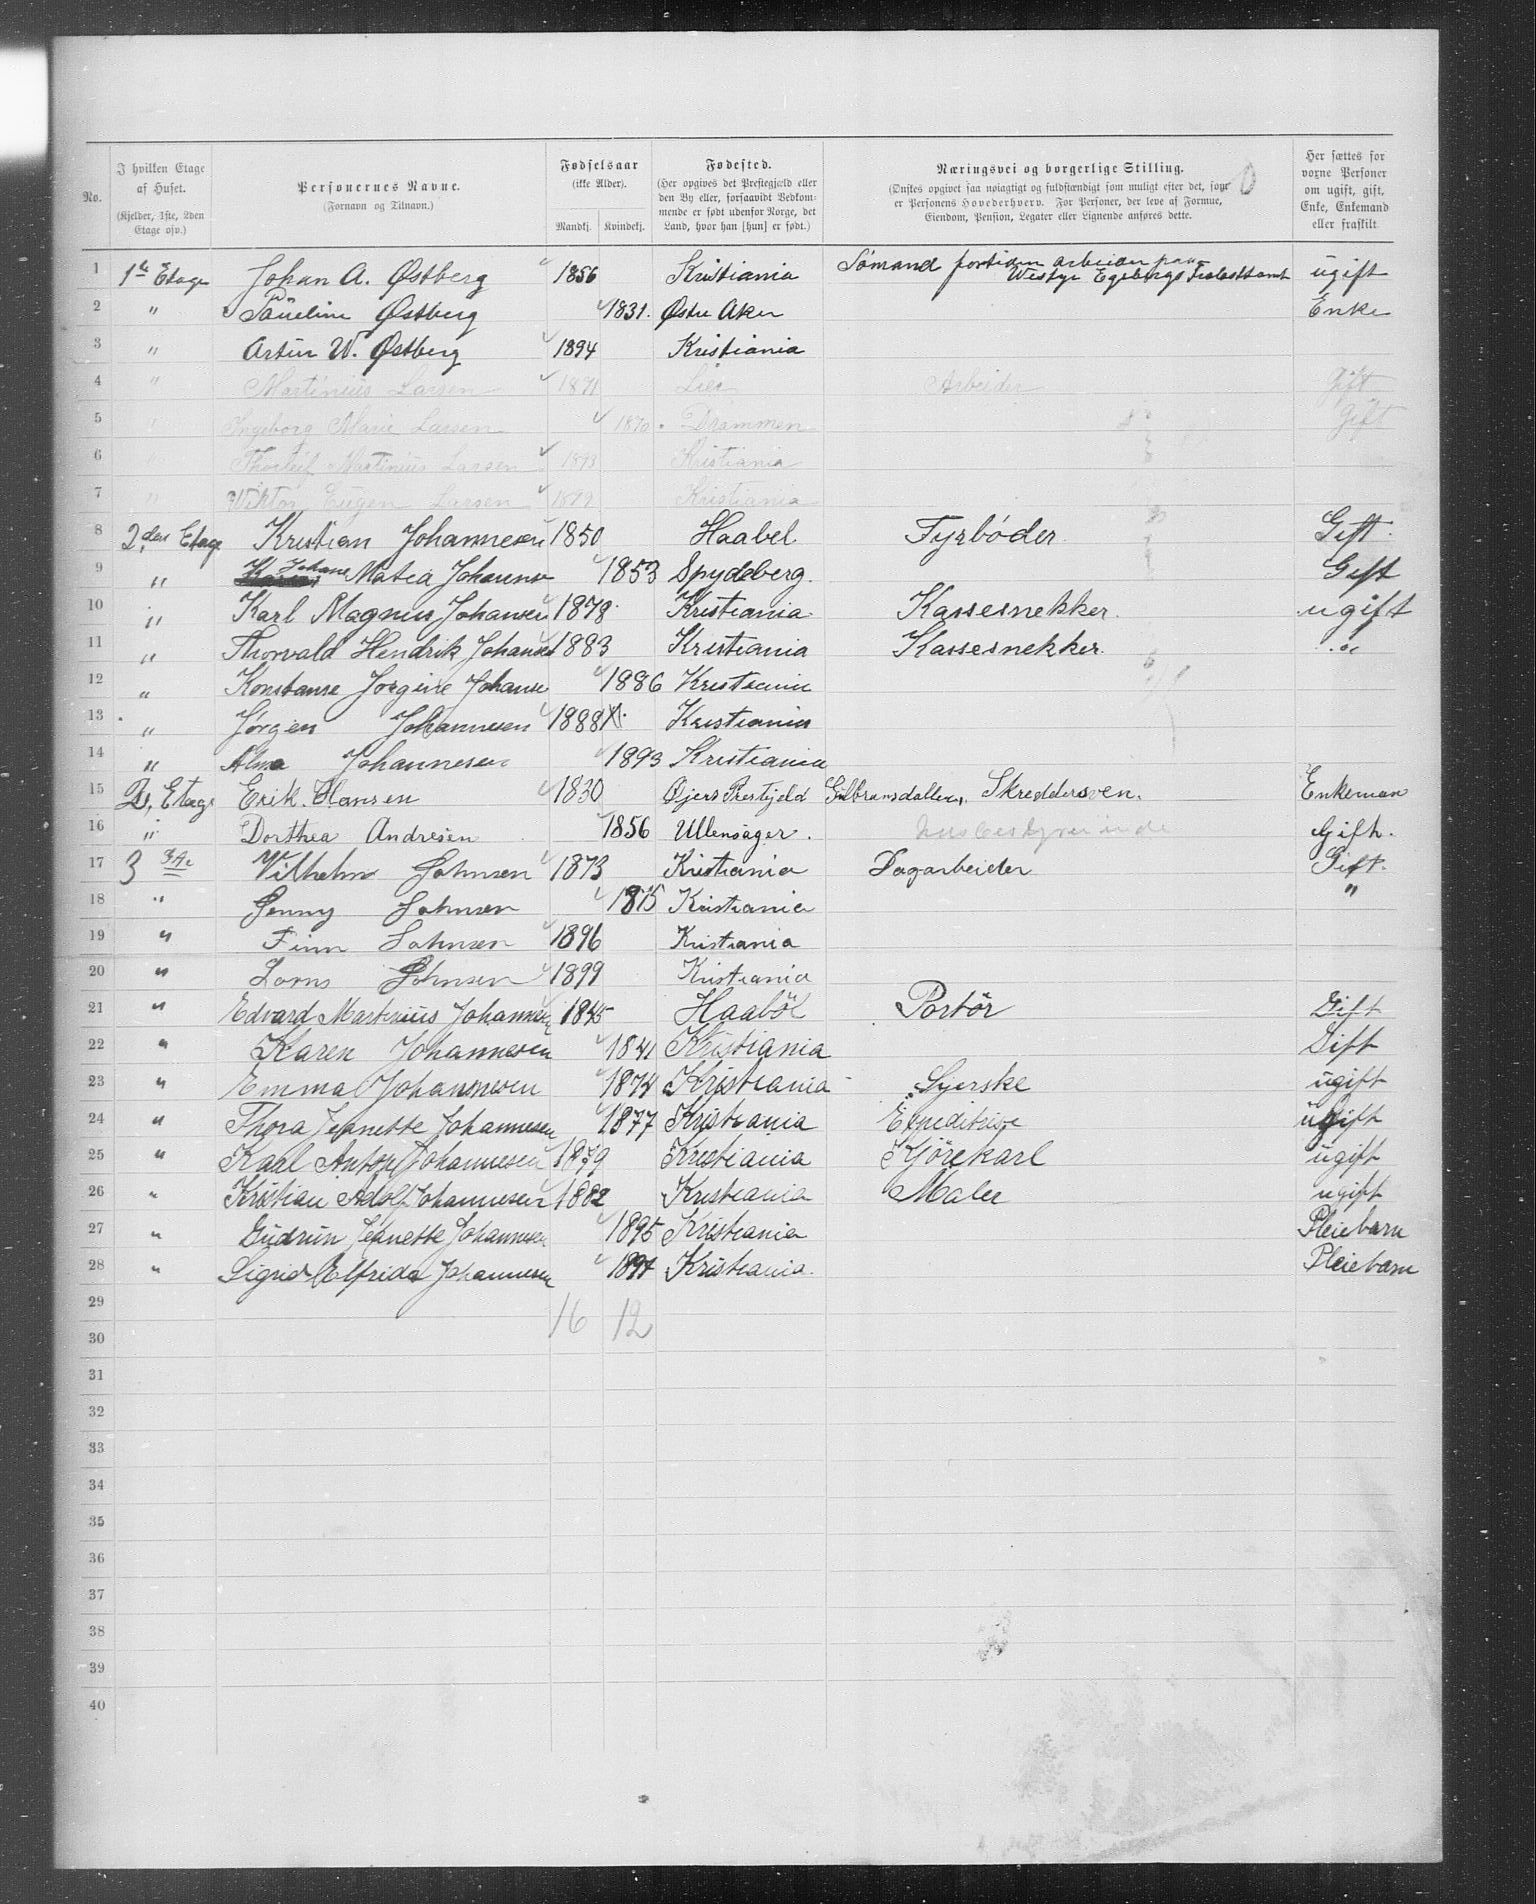 No.
I hvilken Etage af Huset. (Kjelder, 1ste, 2den Etage osv.)
Personernes Navne. (Fornavn og Tilnavn.)
Fødselsaar (ikke Alder). Mandkj. Kvindekj.
Fødested. (Her opgives det Præstegjæld eller den By eller, forsaavidt Vedkommende er født udenfor Norge, det Land, hvor han [hun] er født.)
Næringsvei og borgerlige Stilling. (Ønskes opgivet saa nøiagtigt og fuldstændigt som muligt efter det, som er Personens Hovederhverv. For Personer, der leve af Formue, Eiendom, Pension, Legater eller Lignende anføres dette.) 0
Her sættes for voxne Personer om ugift, gift, Enke, Enkemand eller fraskilt.
1 1ste Etage Johan A. Østberg 1856 Kristiania Sömand fortiden arbeian paa Westye Egebergs ugift
2 " Paüeline Østberg 1831. Østre Aker Enke
3 " Artür W. Østberg 1894 Kristiania
4 " Martiniüs Larsen 1871 Lier Arbeider Gift
5 " Ingeborg Marie Larsen 1870 Drammen Gift
6 " Thorleif Martiniüs Larsen 1893 Kristiania
7 " Viktor Eugen Larsen 1899 Kristiania
8 2den Etage Kristian Johannesen 1850 Haabel Fyrböder Gift.
9 " Johane Matea Johannse 1853 Spydeberg. Gift
10 " Karl Magnus Johansen 1878. Kristiania Kassesnekker. ugift
11 " Thorvald Hendrik Johansen 1883 Kristiania Kassesnekker. "
12 " Konstanse Jorgine Johanse 1886 Kristiania
13 " Jørgen Johannesen 1888 Kristiania
14 " Alma Johannesen 1893 Kristiania
15 2, Etage Erik Hansen 1830 Øjers Prestejeld Gulbransdallen, Skreddersven. Enkeman
16 " Dorthea Andresen 1856 Ullensager. husbestyrerinde Gift.
17 3 Wilhelm Johnsen 1873 Kristiania Dagarbeider Gift.
18 " Jenny Johnsen 1875 Kristiania "
19 " Finn Johnsen 1896 Kristiania
20 " Johnsen 1899 Kristiania
21 " Edvard Martiniüs Johannesen 1845 Haaböl Portör Gift
22 " Karen Johannesen 1841 Kristiania Gift
23 " Emma Johannesen 1874 Kristiania Syerske ugift
24 " Thora Jeanette Johannesen 1877 Kristiania Expeditrise ügift
25 " Karl Anton Johannesen 1879 Kristiania Kjörekarl ugift
26 " Kristian Adolf Johannesen 1882 Kristiania Maler ugift
27 " Güdrün Jeanette Johannesen 1895 Kristiania Pleiebarn
28 " Sigrid Elfrida Johannesen 1897 Kristiania. Pleiebarn
29 16 12
30
31
32
33
34
35
36
37
38
39
40